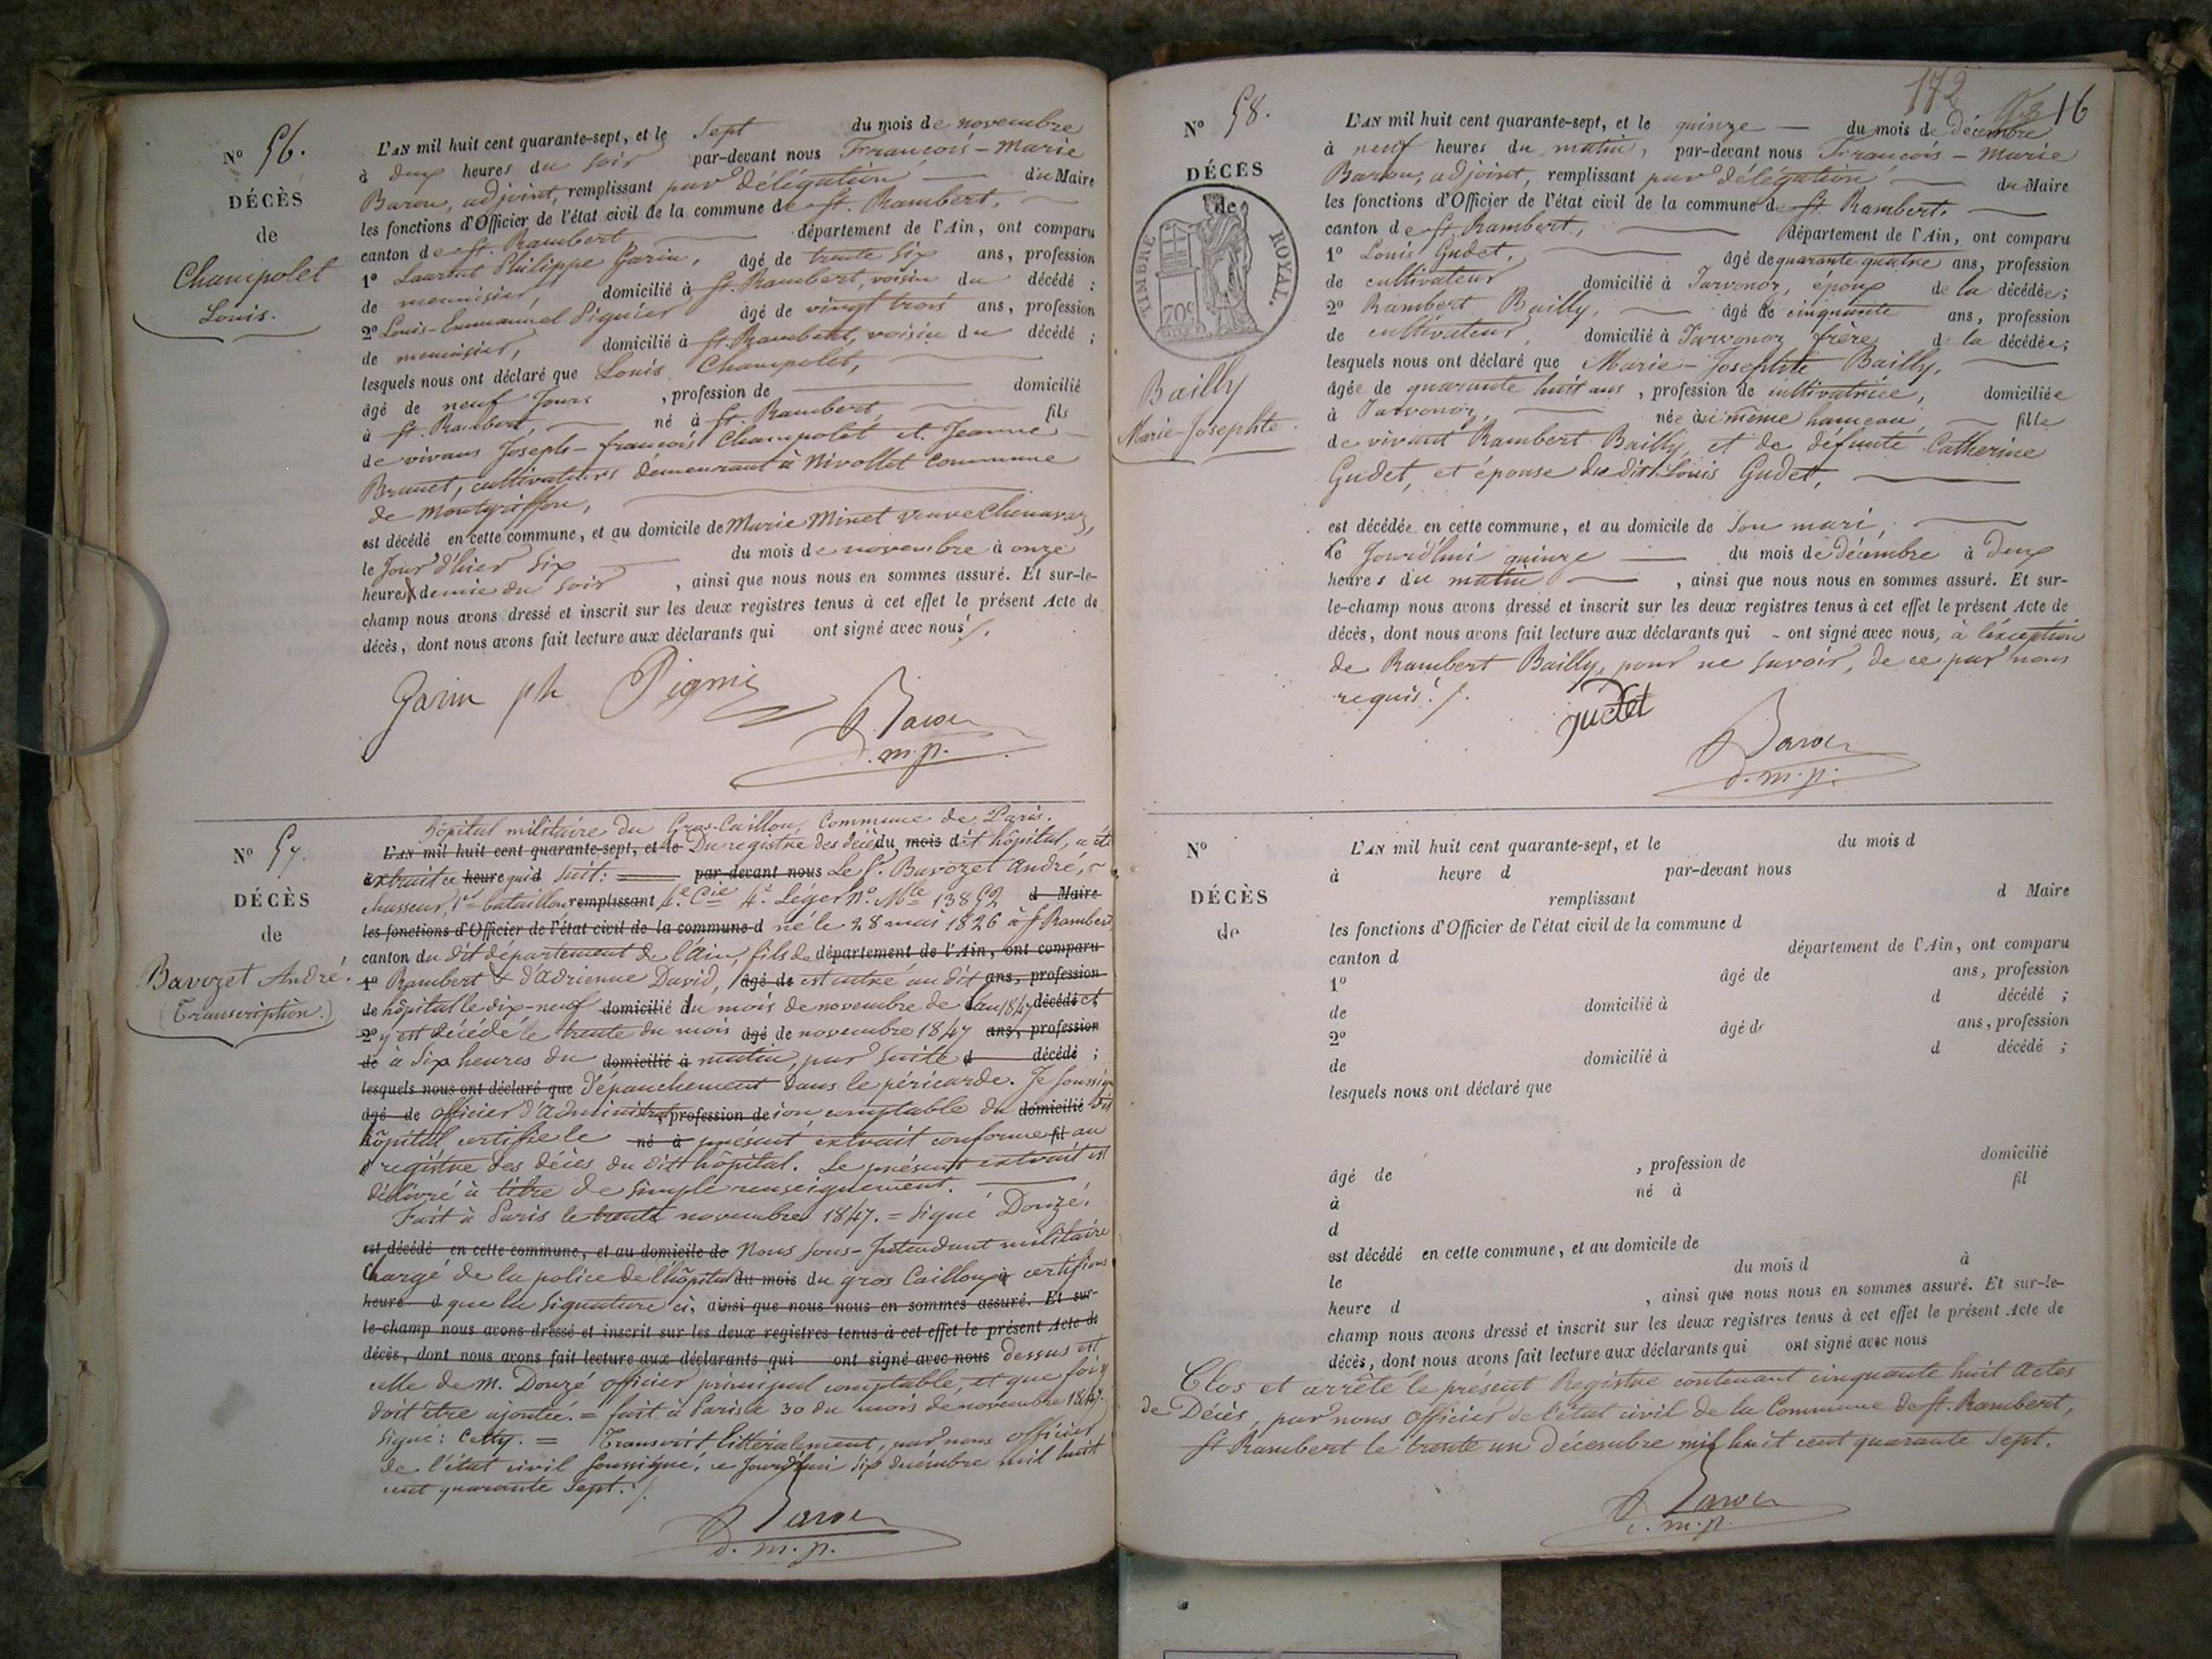 N° 56.
DÉCÈS
de
Champolet
Louis.
L'AN mil huit cent quarante-sept, et le Sept du mois de novembre
à deux heures du soir par-devant nous François-Marie
Baron, adjoint, remplissant par délégation du Maire
les fonctions d'Officier de l'état civil de la commune de St. Rambert,
canton de St. Rambert, département de l'Ain, ont comparu
1° Laurent Philippe Garin, âgé de trente six ans, profession
de menuisier, domicilié à St. Rambert, voisin du décédé ;
2° Louis-Emmanuel Piguier âgé de vingt trois ans, profession
de menuisier, domicilié à St. Rambert, voisin du décédé ;
lesquels nous ont déclaré que Louis Champolet,
âgé de neuf Jours , profession de domicilié
à St. Rambert, né à St. Rambert, fils
de vivans Joseph-françois Champolet et Jeanne
Brunet, cultivateurs demeurant à Nivollet commune
de Montgriffon,
est décédé en cette commune, et au domicile de Marie Minet veuve Chenavaz,
le Jour d'hier six du mois de novembre à onze
heures & demie du soir , ainsi que nous nous en sommes assuré. Et sur-le-
champ nous avons dressé et inscrit sur les deux registres tenus à cet effet le présent Acte de
décès, dont nous avons fait lecture aux déclarants qui ont signé avec nous /.
Garin ph
Baron
d. m. p.
N° 57.
DÉCÈS
de
Bavozet André.
(Transcription.)
hôpital militaire du Gros-Caillou, Commune de Paris.
L'AN mil huit cent quarante-sept, et le Du registre des décès du mois dit hôpital, a été
extrait ce heure qui d suit : par-devant nous Le Sr. Bavozet André,
chasseur, 1er bataillon, remplissant 4e. Cie 4e. Léger N°. Mle 13852 d Maire
les fonctions d'Officier de l'état civil de la commune d né le 28 mai 1826 à St Rambert,
canton du dit département de l'Ain, fils de département de l'Ain, ont comparu
1° Rambert & d'Adrienne David, âgé de est entré au dit ans, profession
de hôpital le dix-neuf domicilié du mois de novembre de l'an 1847 décédé et
2° y est décédé le trente du mois âgé de novembre 1847 ans, profession
de à six heures du domicilié à matin, par suite d décédé ;
lesquels nous ont déclaré que d'épanchement dans le péricarde. Je soussigné
âgé de officier d'administrat , profession de ion comptable du domicilié dit
hôpital certifie le né à présent extrait conforme fil au
d registre des décès du dit hôpital. Le présent extrait est
délivré à titre de simple renseignement.
Fait à Paris le trente novembre 1847. = Signé Douzé.
est décédé en cette commune, et au domicile de Nous Sous-Intendant militaire
chargé de la police de l'hôpital du mois du gros Caillou à certifions
heure d que la signature ci, ainsi que nous nous en sommes assuré. Et sur-
le-champ nous avons dressé et inscrit sur les deux registres tenus à cet effet le présent Acte de
décès, dont nous avons fait lecture aux déclarants qui ont signé avec nous dessus est
celle de M. Douzé officier principal comptable, et que foi y
doit être ajoutée. = fait à Paris le 30 du mois de novembre 1847.
Signé : Cetty. = Transcrit littéralement, par nous officier
de l'état civil soussigné, ce Jourd'hui six décembre mil huit
cent quarante sept. /.
Baron
d. m. p.
172
16
N° 58.
DÉCÈS
de
TIMBRE ROYAL.
70c
Bailly
Marie-Josephte.
L'AN mil huit cent quarante-sept, et le quinze du mois de Décembre
à neuf heures du matin, par-devant nous François-Marie
Baron, adjoint, remplissant par délégation du Maire
les fonctions d'Officier de l'état civil de la commune de St. Rambert,
canton de St. Rambert, département de l'Ain, ont comparu
1° Louis Gudet, âgé de quarante quatre ans, profession
de cultivateur domicilié à Javornoz, époux de la décédée;
2° Rambert Bailly, âgé de cinquante ans, profession
de cultivateur, domicilié à Javornoz frère de la décédée;
lesquels nous ont déclaré que Marie-Josephte Bailly,
âgée de quarante huit ans , profession de cultivatrice, domiciliée
à Javornoz, née au même hameau, fille
de vivant Rambert Bailly, et de défunte Catherine
Gudet, et épouse du dit Louis Gudet,
est décédée en cette commune, et au domicile de Son mari,
le Jourd'hui quinze du mois de Décembre à Deux
heures du matin , ainsi que nous nous en sommes assuré. Et sur-
le-champ nous avons dressé et inscrit sur les deux registres tenus à cet effet le présent Acte de
décès, dont nous avons fait lecture aux déclarants qui ont signé avec nous, à l'exception
de Rambert Bailly, pour ne savoir, de ce par nous
requis. /.
Gudet
Baron
d. m. p.
N°
DÉCÈS
de
L'AN mil huit cent quarante-sept, et le du mois d
à heure d par-devant nous
remplissant d Maire
les fonctions d'Officier de l'état civil de la commune d
canton d département de l'Ain, ont comparu
1° âgé de ans, profession
de domicilié à d décédé ;
2° âgé de ans, profession
de domicilié à d décédé ;
lesquels nous ont déclaré que
âgé de , profession de domicilié
à né à fil
d
est décédé en cette commune, et au domicile de
le du mois d à
heure d , ainsi que nous nous en sommes assuré. Et sur-le-
champ nous avons dressé et inscrit sur les deux registres tenus à cet effet le présent Acte de
décès, dont nous avons fait lecture aux déclarants qui ont signé avec nous
Clos et arrêté le présent Registre contenant cinquante huit Actes
de Décès, par nous Officier de l'état civil de la Commune de St. Rambert,
St Rambert le trente un Décembre mil huit cent quarante Sept.
Baron
d. m. p.